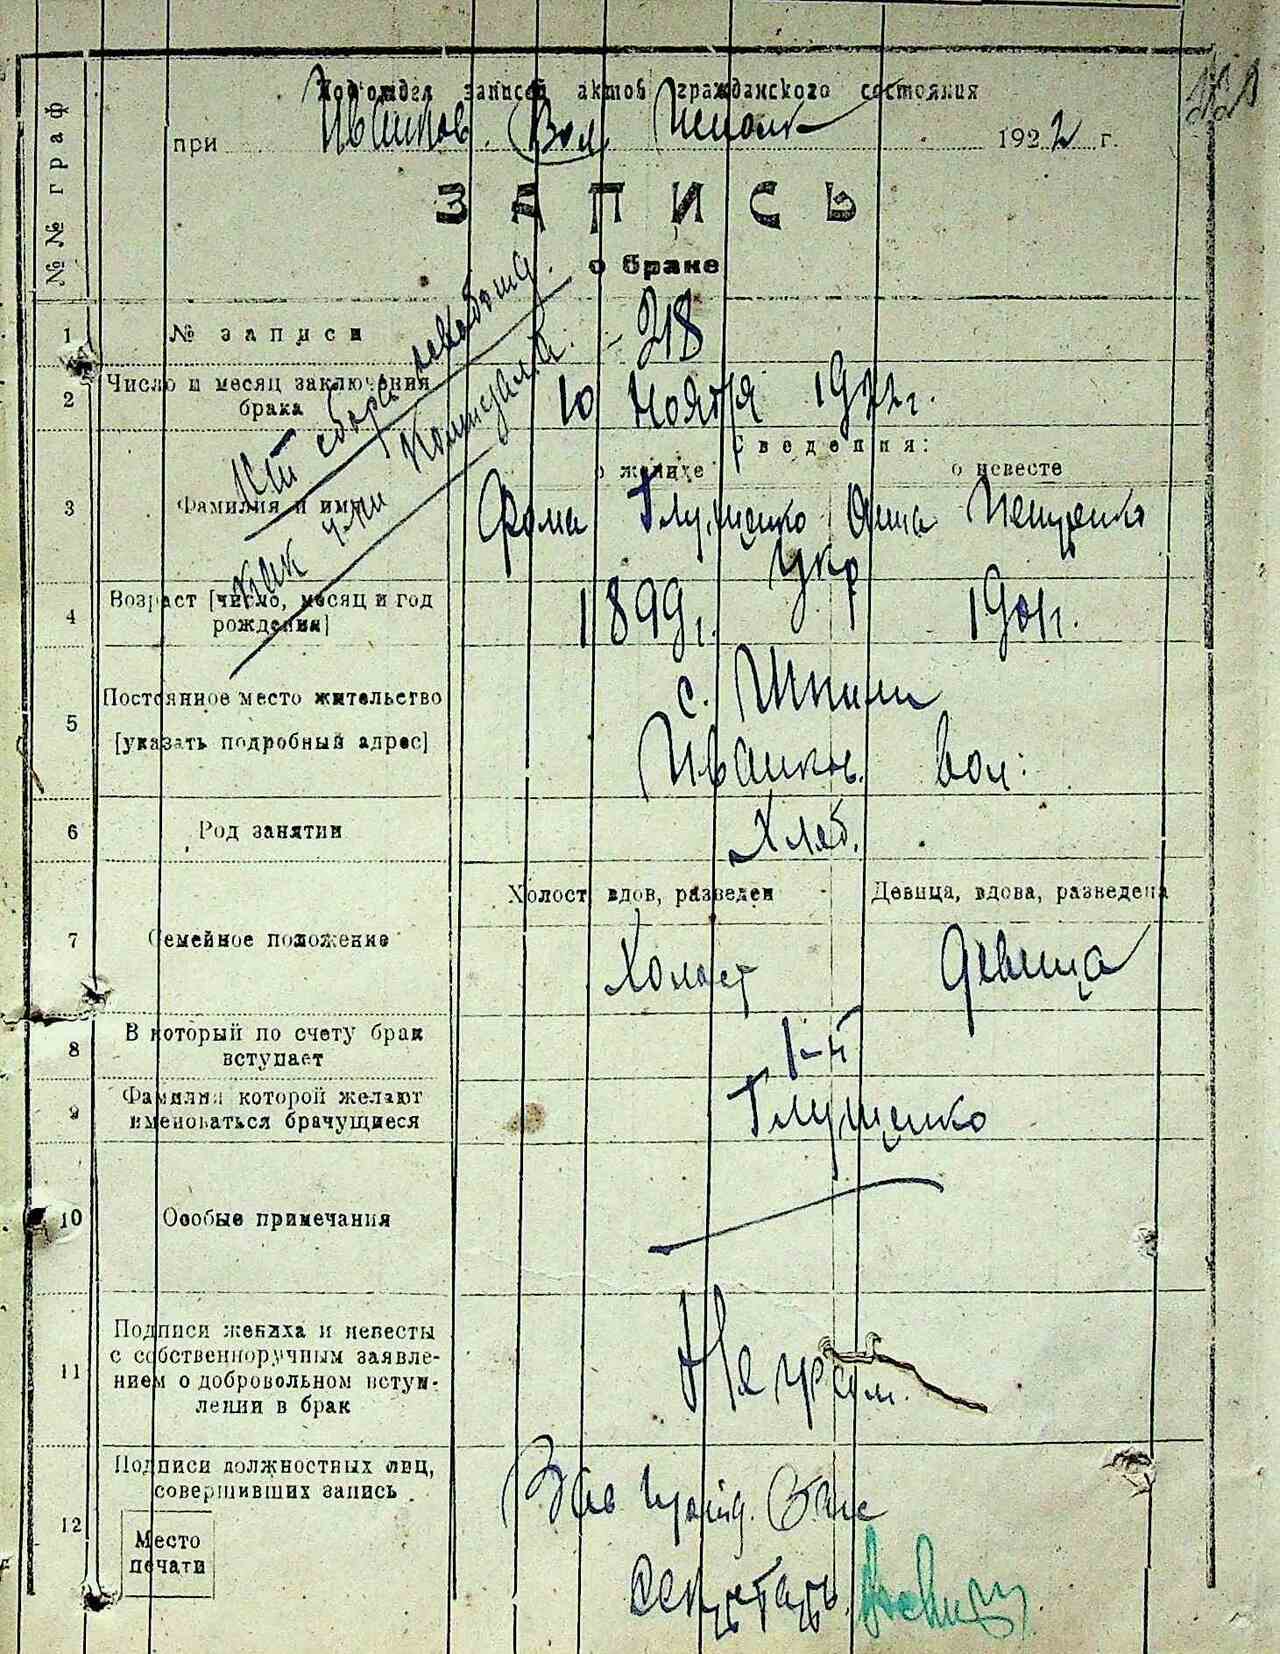 Подотдел записей актов гражданского состояния
при Иванков. Вол. Исполк 1922 г.
№№ граф
ЗАПИСЬ
о браке
1 № записи 218
2 Число и месяц заключения
брака
10 Ноября 1922 г.
Сведения:
о женихе о невесте
3 Фамилия и имя Фома Глущенко Анна
Укр
4 Возраст [число, месяц и год
рождения]
1899 г. 1901 г.
5 Постоянное место жительство
[указать подробный адрес]
с. Шпили
Иванков. вол:
6 Род занятии Хлеб.
Холост, вдов, разведен Девица, вдова, разведена
7 Семейное положение Холост Девица
8 В который по счету брак
вступает
1-й
9 Фамилия которой желают
именоваться брачущиеся
Глущенко
10 Особые примечания
11 Подписи жениха и невесты
с собственноручным заявле-
нием о добровольном вступ-
лении в брак
Неграм.
12 Подписи должностных лиц,
совершивших запись
Место
печати
Зав подотд. Загс
Секретарь